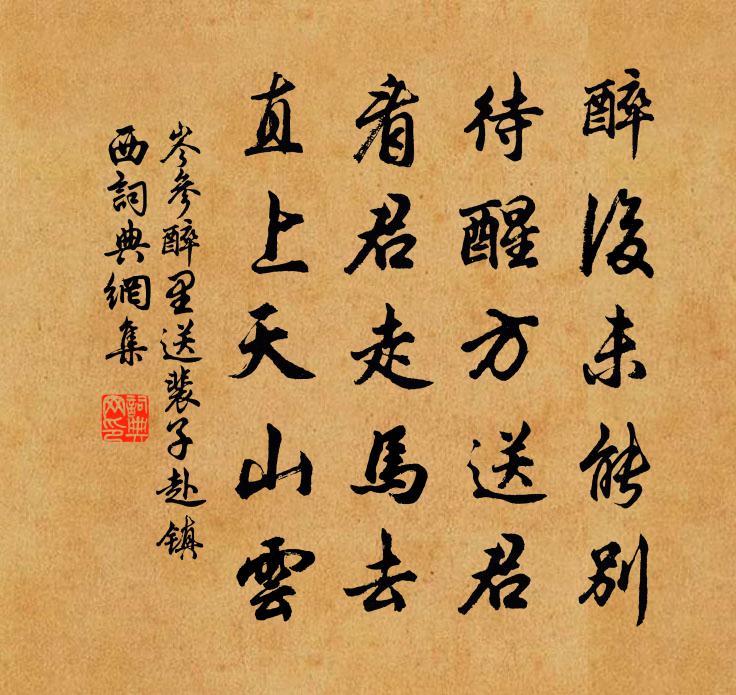 醉後未能別
待醒方送君
看君走馬去
直上天山雲
岑參醉里送裴子赴鎮
西詞典網集
詞典
网印